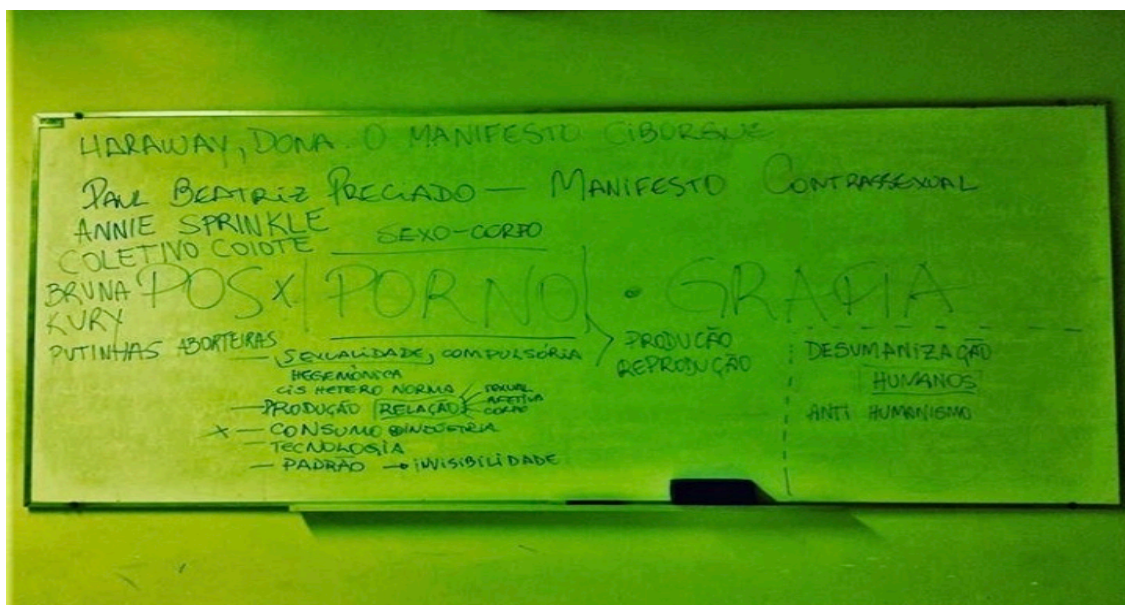 HARAWAY, DONA. O MANIFESTO CIBORGUE
PAUL BEATRIZ PRECIADO — MANIFESTO CONTRASSEXUAL
ANNIE SPRINKLE
SEXO-CORPO
COLETIVO COIOTE
BRUNA
KURY
POSX/PORNO/·GRAFIA
PUTINHAS ABORTEIRAS
— SEXUALIDADE, COMPULSÓRIA
HEGEMÔNICA
CIS HETERO NORMA
— PRODUÇÃO RELAÇÃO
SEXUAL
AFETIVA
CORPO
X — CONSUMO INDÚSTRIA
— TECNOLOGIA
— PADRÃO → INVISIBILIDADE
PRODUÇÃO
REPRODUÇÃO
DESUMANIZAÇÃO
HUMANOS
ANTI HUMANISMO